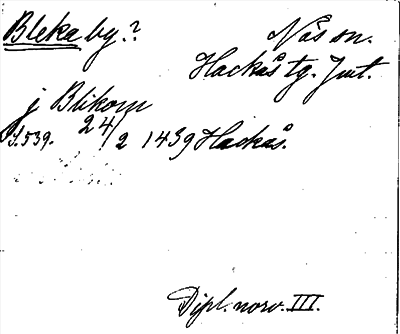 Bleka by.?
Nås sn.
Hackås tg. Jmt.
j Blikom
S. 539. 24/2 1439 Hackås.
Dipl. norv. III.